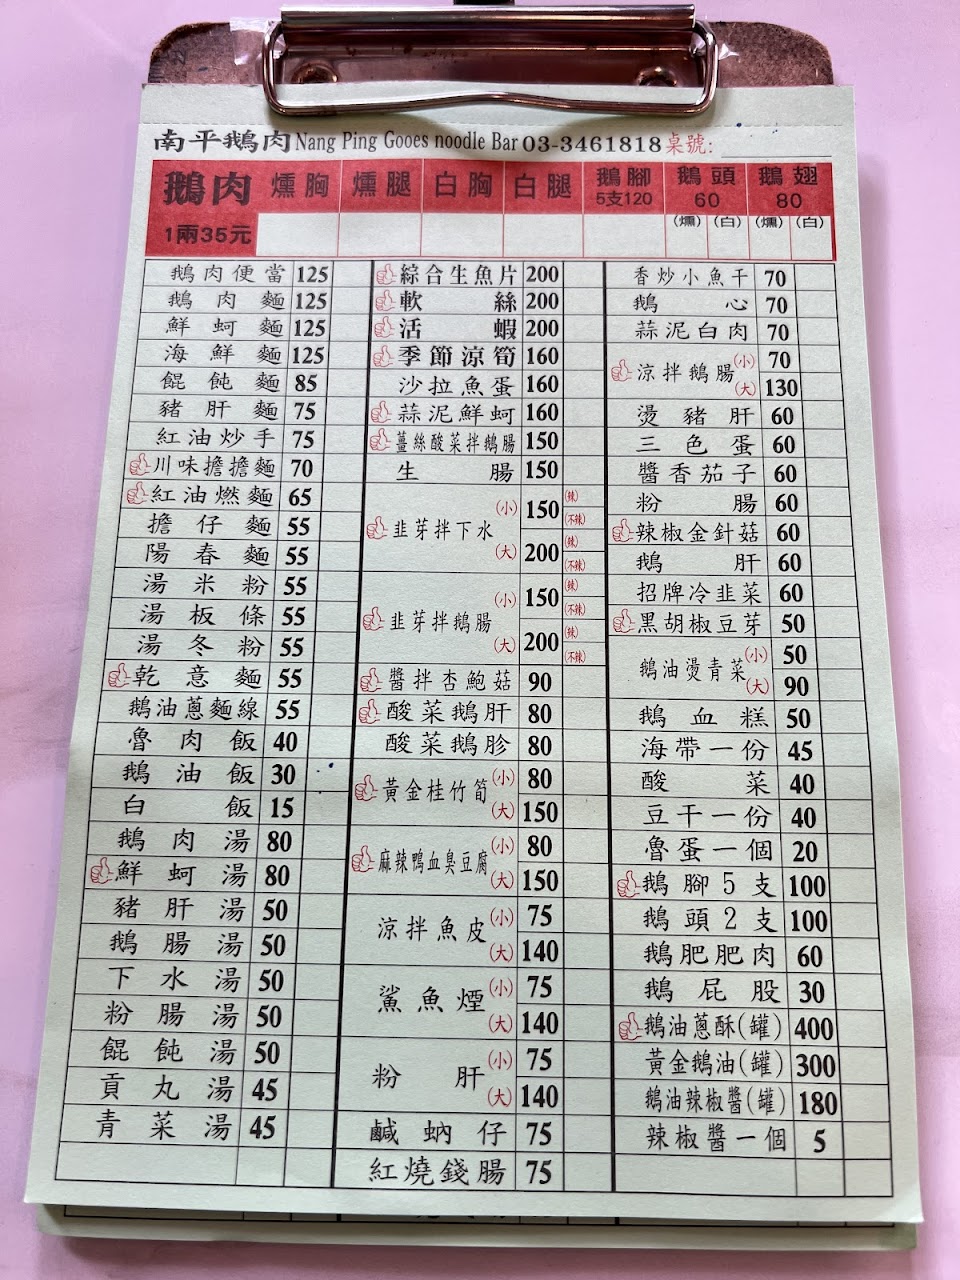 南平鵝肉 Nang Ping Gooes noodle Bar 03-3461818 桌號:
鵝肉 燻胸 燻腿 白胸 白腿 鵝腳 5支120 鵝頭 60 鵝翅 80
1兩35元 (燻) (白) (燻) (白)
鵝肉便當 125
鵝肉麵 125
鮮蚵麵 125
海鮮麵 125
餛飩麵 85
豬肝麵 75
紅油炒手 75
川味擔擔麵 70
紅油燃麵 65
擔仔麵 55
陽春麵 55
湯米粉 55
湯板條 55
湯冬粉 55
乾意麵 55
鵝油蔥麵線 55
魯肉飯 40
鵝油飯 30
白飯 15
鵝肉湯 80
鮮蚵湯 80
豬肝湯 50
鵝腸湯 50
下水湯 50
粉腸湯 50
餛飩湯 50
貢丸湯 45
青菜湯 45
綜合生魚片 200
軟絲 200
活蝦 200
季節涼筍 160
沙拉魚蛋 160
蒜泥鮮蚵 160
薑絲酸菜拌鵝腸 150
生腸 150
韭芽拌下水 (小) 150 (辣) (不辣)
(大) 200 (辣) (不辣)
韭芽拌鵝腸 (小) 150 (辣) (不辣)
(大) 200 (辣) (不辣)
醬拌杏鮑菇 90
酸菜鵝肝 80
酸菜鵝胗 80
黃金桂竹筍 (小) 80
(大) 150
麻辣鴨血臭豆腐 (小) 80
(大) 150
涼拌魚皮 (小) 75
(大) 140
鯊魚煙 (小) 75
(大) 140
粉肝 (小) 75
(大) 140
鹹蚋仔 75
紅燒錢腸 75
香炒小魚干 70
鵝心 70
蒜泥白肉 70
涼拌鵝腸 (小) 70
(大) 130
燙豬肝 60
三色蛋 60
醬香茄子 60
粉腸 60
辣椒金針菇 60
鵝肝 60
招牌冷韭菜 60
黑胡椒豆芽 50
鵝油燙青菜 (小) 50
(大) 90
鵝血糕 50
海帶一份 45
酸菜 40
豆干一份 40
魯蛋一個 20
鵝腳5支 100
鵝頭2支 100
鵝肥肥肉 60
鵝屁股 30
鵝油蔥酥(罐) 400
黃金鵝油(罐) 300
鵝油辣椒醬(罐) 180
辣椒醬一個 5